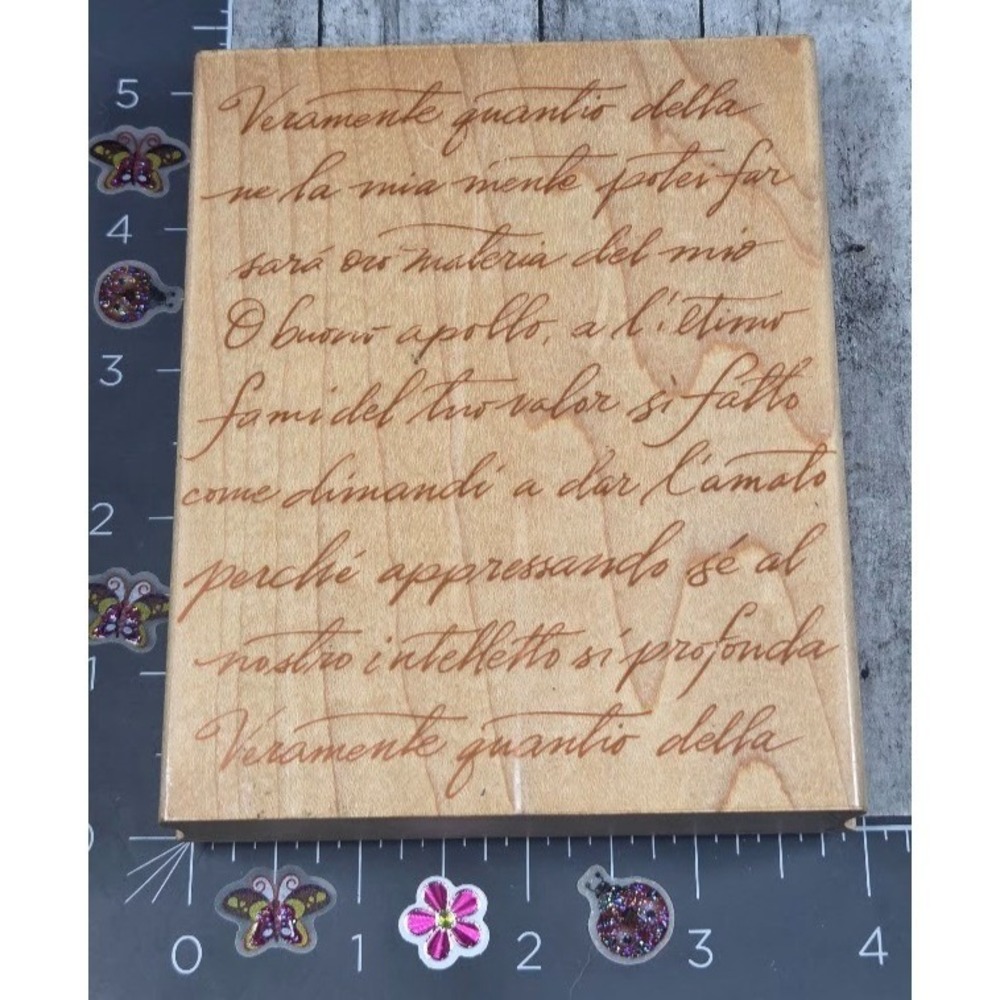 Veramente quantio della
ne la mia mente potei far
sará oro materia del mio
O buono apollo, a l'iltimo
fami del tuo valor sì fatto
come dimandi a dar l'amato
perché appressando sé al
nostro intelletto si profonda
Veramente quantio della
5
4
3
2
1
0
0 1 2 3 4